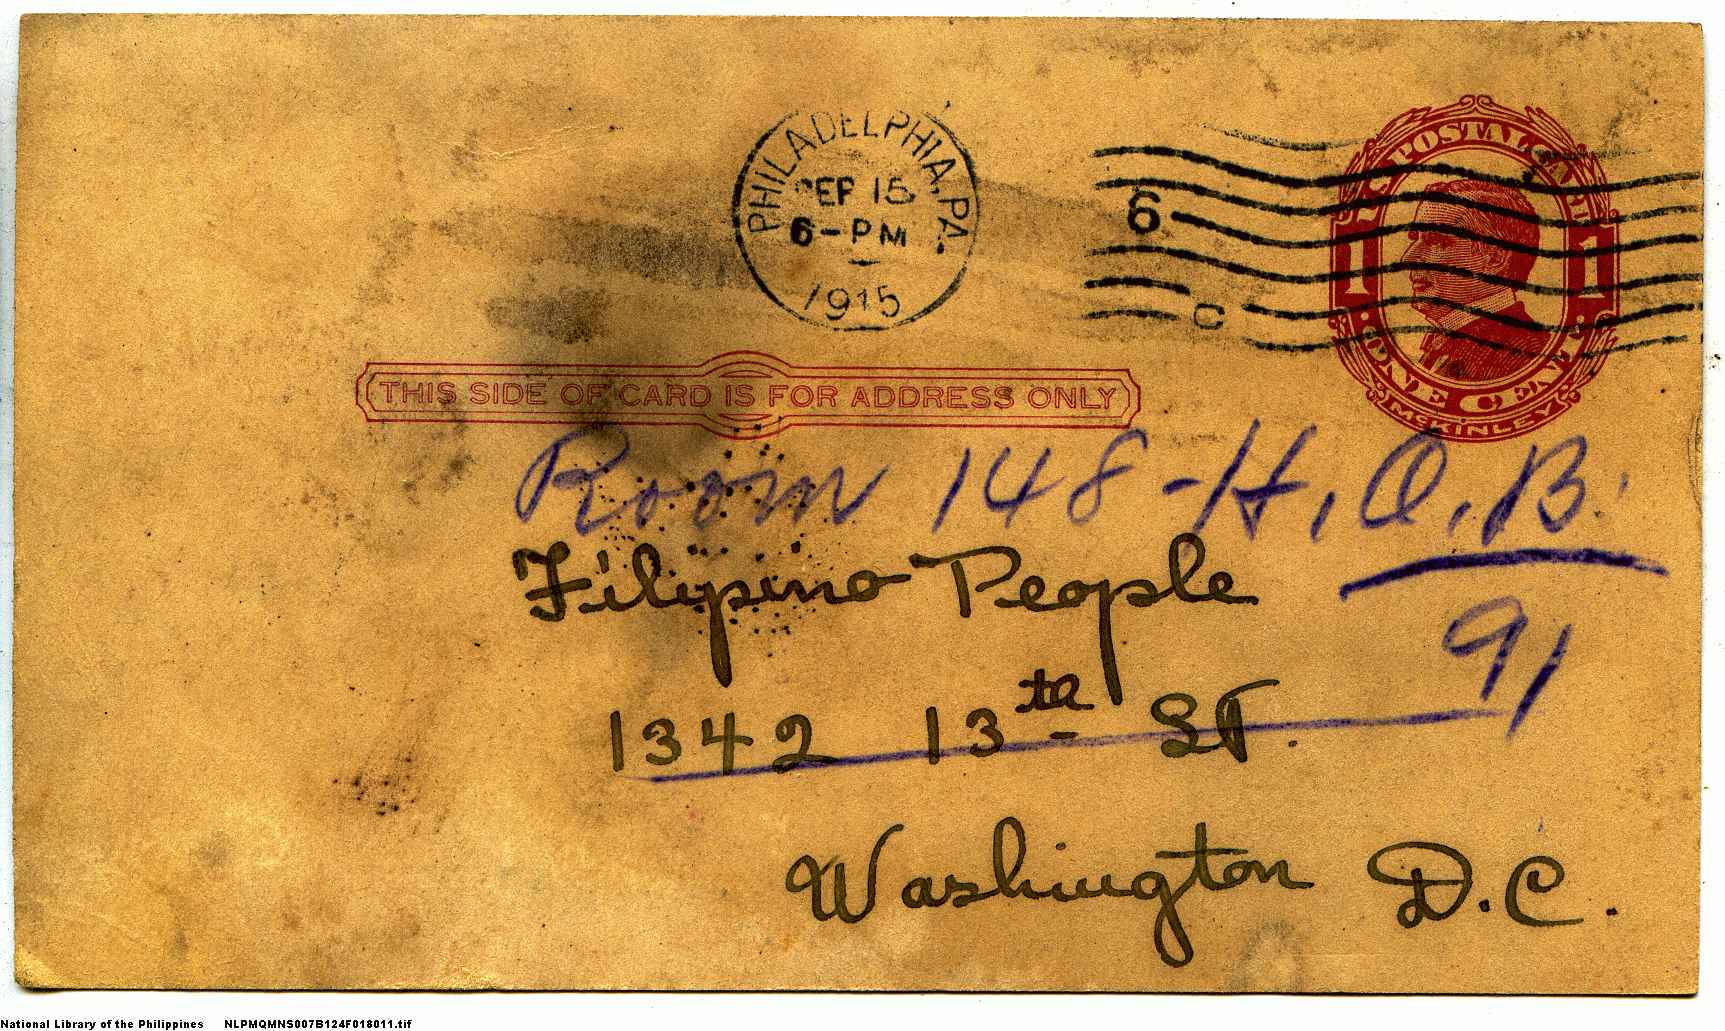 PHILADELPHIA, PA.
SEP 15
6-PM
1915
6
C
U.S. POSTAL CARD
1 1
ONE CENT
McKINLEY
THIS SIDE OF CARD IS FOR ADDRESS ONLY
Room 148-H.O.B.
Filipino People
91
1342 13th St.
Washington D.C.
National Library of the Philippines NLPMQMNS007B124F018011.tif